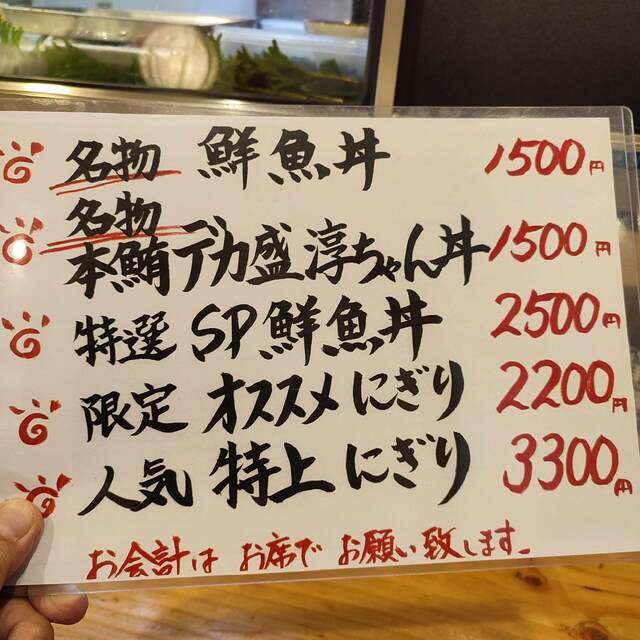 名物 鮮魚丼 1500円
名物
本鮪デカ盛淳ちゃん丼 1500円
特選 SP鮮魚丼 2500円
限定 オススメにぎり 2200円
人気 特上にぎり 3300円
お会計は お席で お願い致します。